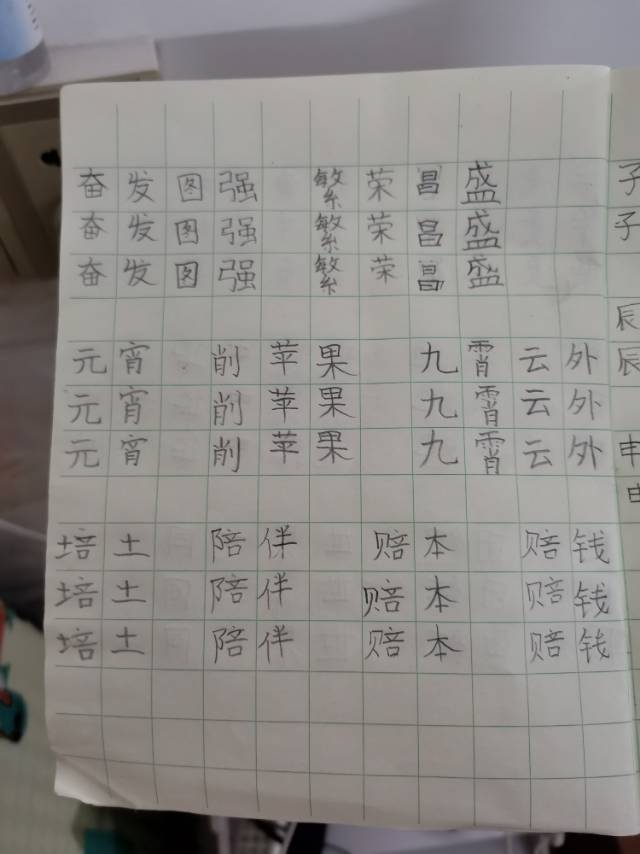 奋发图强 繁荣昌盛 子
奋发图强 繁荣昌盛 子
奋发图强 繁荣昌盛
辰
元宵 削苹果 九霄云外 辰
元宵 削苹果 九霄云外
元宵 削苹果 九霄云外 申
培土 陪伴 赔本 赔钱
培土 陪伴 赔本 赔钱
培土 陪伴 赔本 赔钱